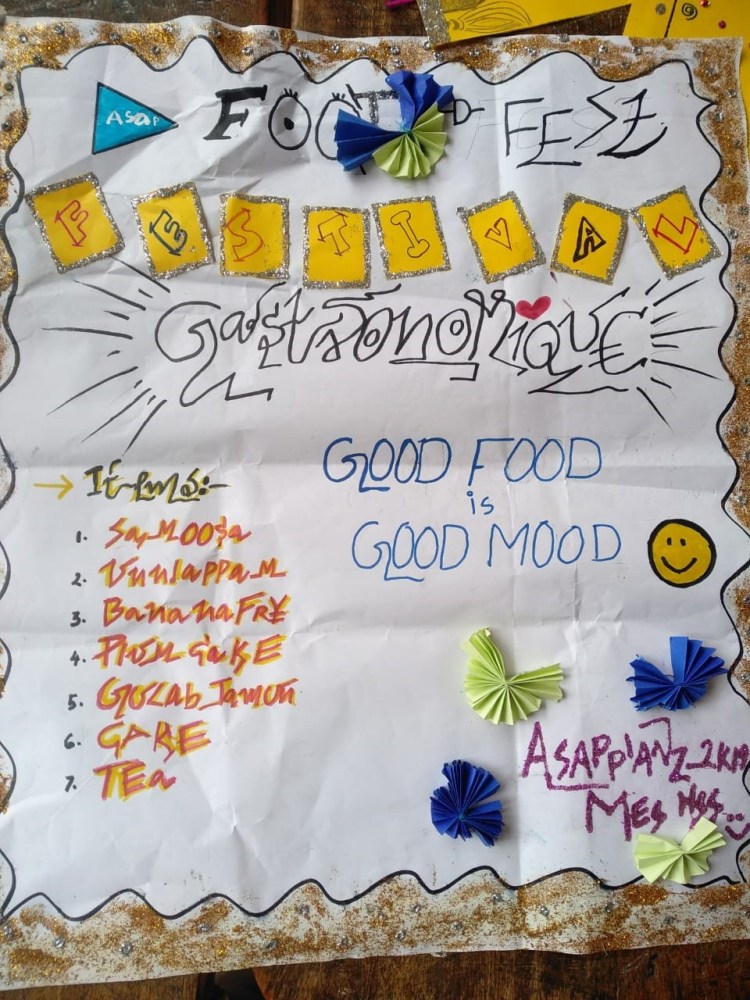 Asap
FOOD FEST
FESTIVAL
GastronomiQUE
→ Items:-
GOOD FOOD
is
GOOD MOOD
1. SaMOOSa
2. UnniappaM
3. Banana FRY
4. PLUM CaKE
5. GOLab Jamun
6. CAKE
7. TEa
ASAPPIANZ
MES HSS